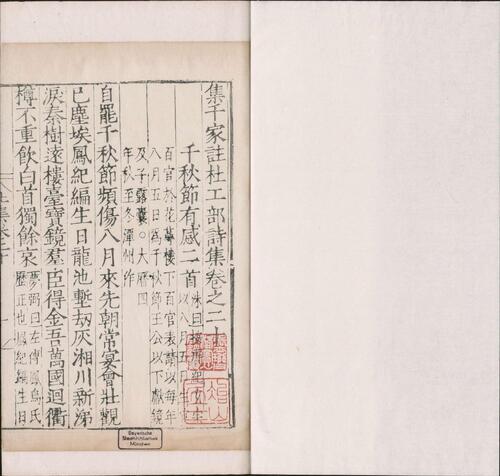 集千家註杜工部詩集卷之二十
千秋節有感二首
百官於花萼樓下百官表請以每年
八月五日為千秋節王公以下獻鏡
及子露囊○大曆四
年秋至冬潭州作
自罷千秋節頻傷八月來先朝常宴會壯觀
已塵埃鳳紀編生日龍池塹劫灰湘川新涕
淚秦樹遠樓臺寶鏡羣臣得金吾萬國迴衢
樽不重飲白首獨餘哀
夢弼曰左傳鳳鳥氏
歷正也鳳紀編生日
Bayerische
Staatsbibliothek
München